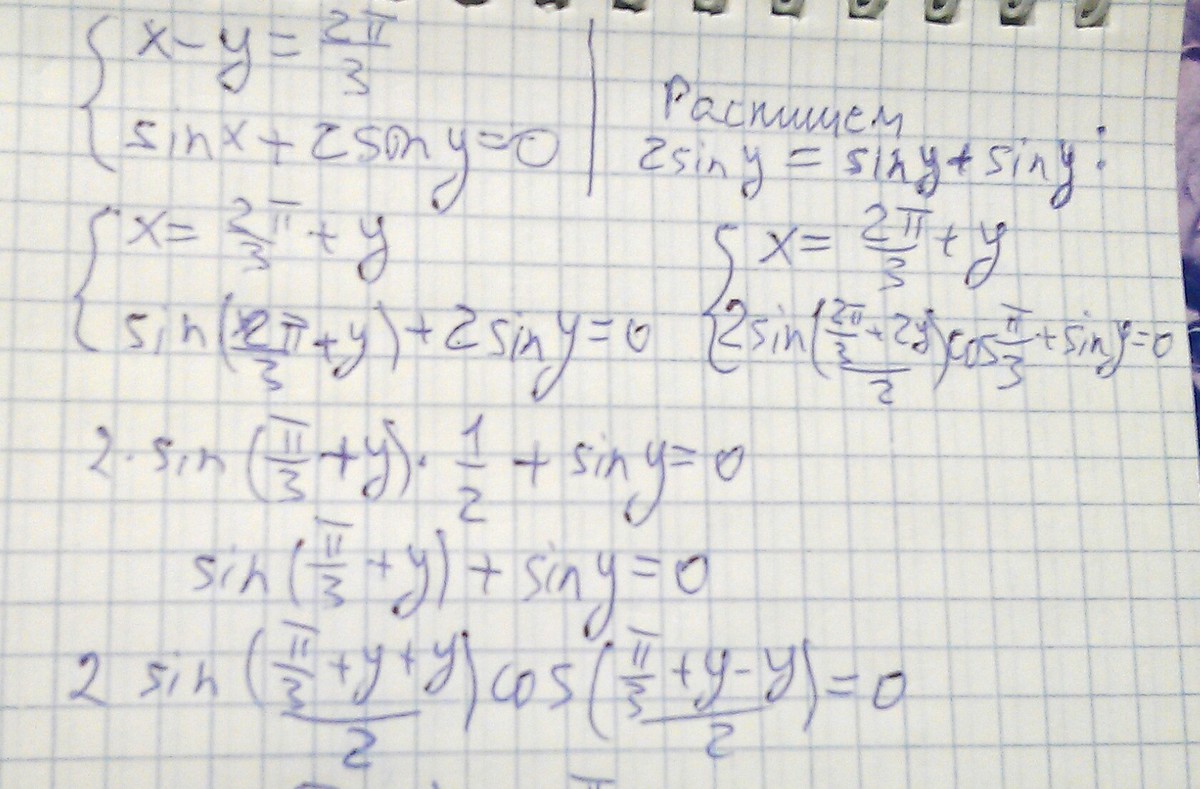 { x - y = 2π/3
sin x + 2 son y = 0
Распишем
2 sin y = sin y + sin y :
{ x = 2π/3 + y
sin(2π/3 + y) + 2 sin y = 0
{ x = 2π/3 + y
2 sin((2π/3 + 2y)/2) cos π/3 + sin y = 0
2 · sin(π/3 + y) · 1/2 + sin y = 0
sin(π/3 + y) + sin y = 0
2 sin((π/3 + y + y)/2) cos((π/3 + y - y)/2) = 0